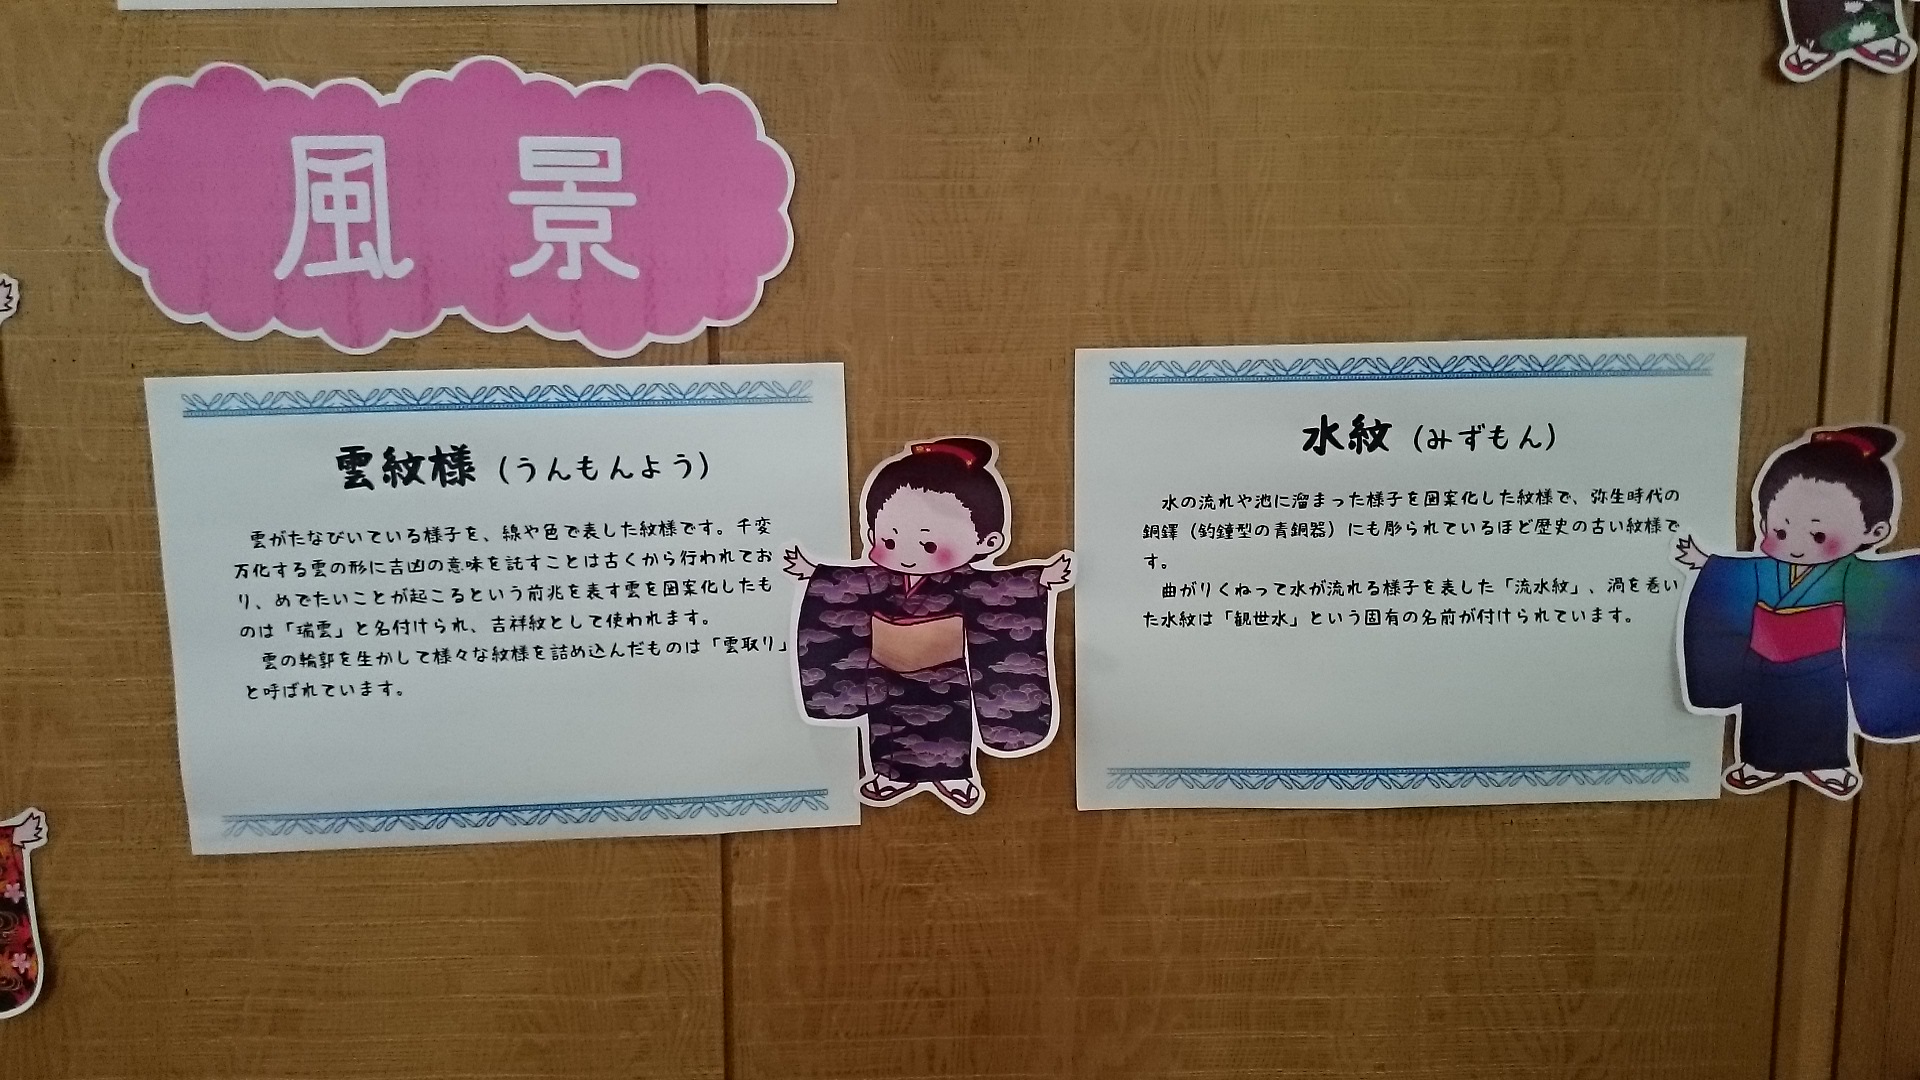 風景
雲紋様（うんもんよう）
雲がたなびいている様子を、線や色で表した紋様です。千変
万化する雲の形に吉凶の意味を託すことは古くから行われてお
り、めでたいことが起こるという前兆を表す雲を図案化したも
のは「瑞雲」と名付けられ、吉祥紋として使われます。
雲の輪郭を生かして様々な紋様を詰め込んだものは「雲取り」
と呼ばれています。
水紋（みずもん）
水の流れや池に溜まった様子を図案化した紋様で、弥生時代の
銅鐸（釣鐘型の青銅器）にも彫られているほど歴史の古い紋様で
す。
曲がりくねって水が流れる様子を表した「流水紋」、渦を巻い
た水紋は「観世水」という固有の名前が付けられています。